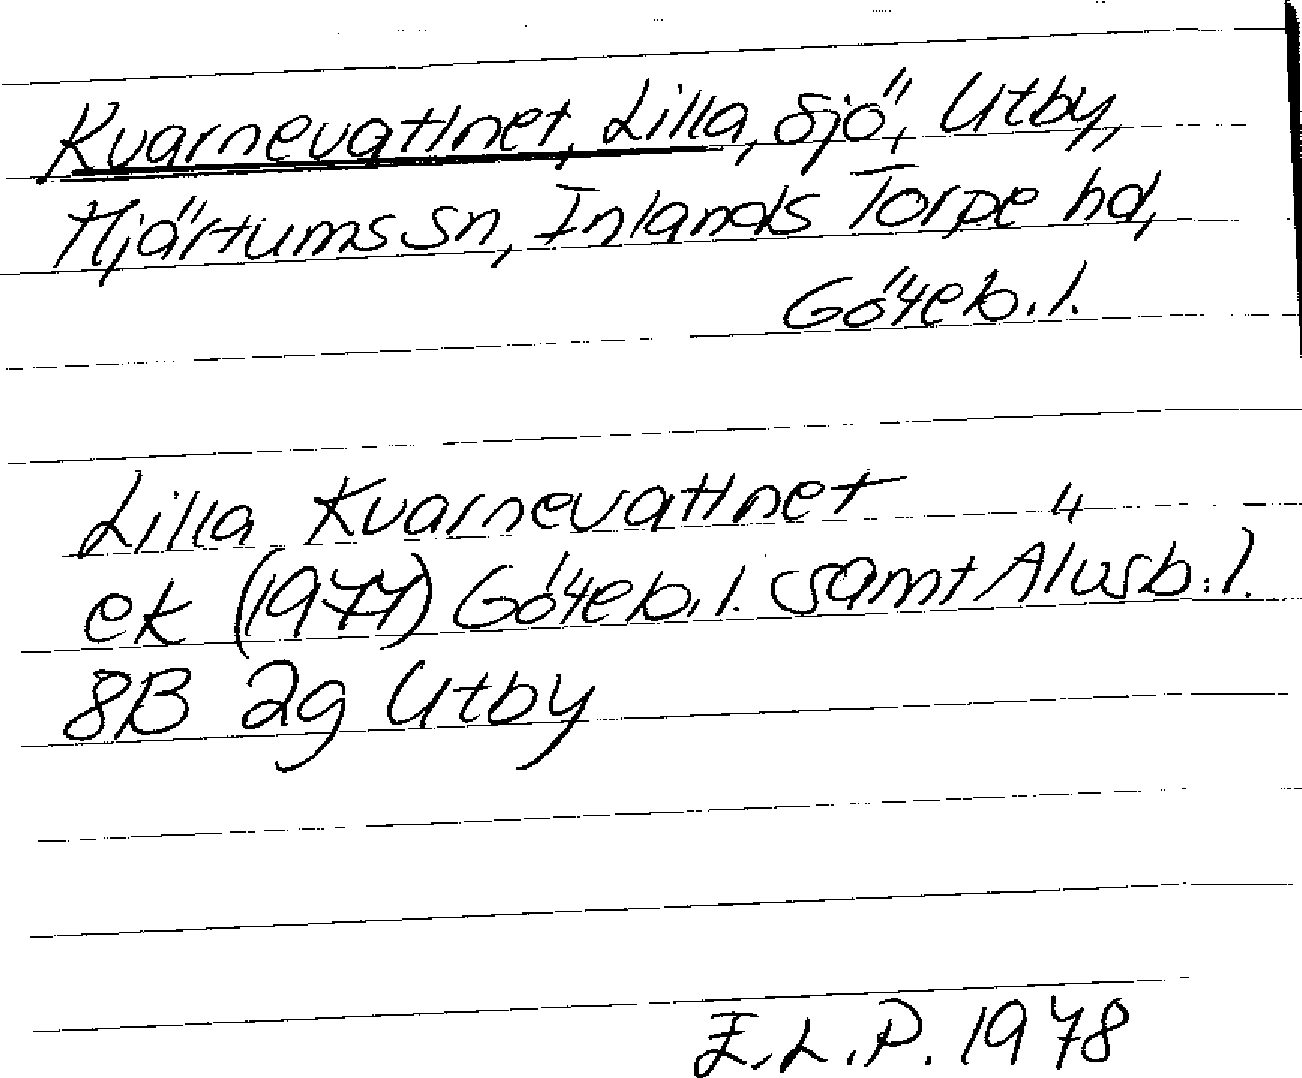 Kvarnevattnet, Lilla, sjö, Utby,
Hjärtums sn, Inlands Torpe hd,
Göteb. l.
Lilla Kvarnevattnet 4
ek (1977) Göteb. l. samt Älvsb. l.
8B 2g Utby
E.L.P. 1978